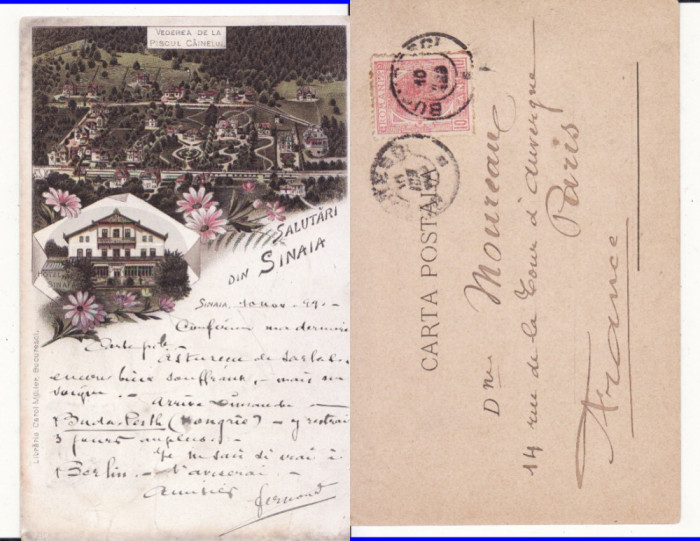 VEDEREA DE LA
PISCUL CÂINELUI
SALUTĂRI
DIN SINAIA
HOTEL
SINAIA
SINAIA, 10 nov. 99. -
Confirme ma dernière
Carte pole. -
encore bien souffrant, - mais en
Arrive Dimanche
Buda-Pesth (Hongrie) - y restrai
3 jours au plus. -
Je ne sais si irai à
Berlin. - t'aviserai. -
Amitiés
Fernand
LIBRĂRIA CAROL MÜLLER, BUCURESCI.
CARTA POSTALA
Dnei Moureau
14 rue de la Tour d'Auvergne
Paris
France
BUCURESCI
10
10